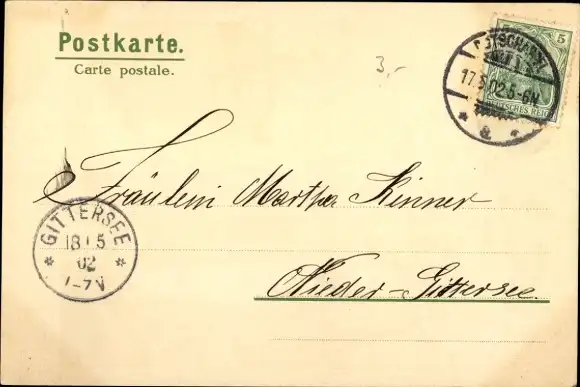 Postkarte.
Carte postale.
3,-
5
17.5.02.5-6N
DEUTSCHES REICH
* a. *
Fräulein Martha Kinner
GITTERSEE
18 5
02
7-7N
Nieder-Gittersee.